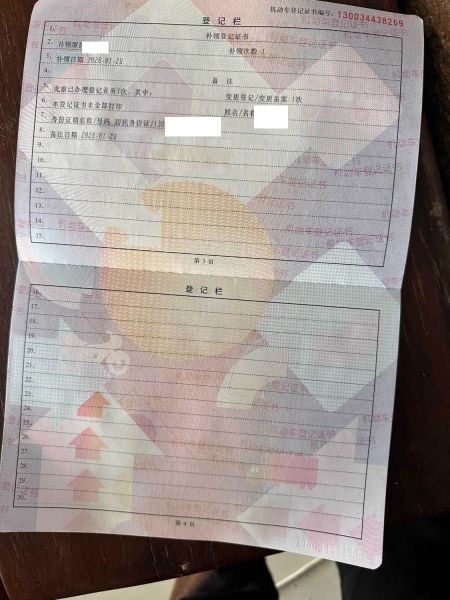 机动车登记证书编号: 130034438269
登记栏
1. 补领登记证书
2. 补领原因 补领次数:1
3. 补领日期:2026-01-29
4. 备注
5. 先前已办理登记业务1次，其中: 变更登记/变更备案:1次
6. 本登记证书未全部打印
7. 身份证明名称/号码:居民身份证/130 姓名/名称
8. 备注日期:2026-01-29
9.
10.
11.
12.
13.
14.
15.
第3页
登记栏
16.
17.
18.
19.
20.
21.
22.
23.
24.
25.
26.
27.
28.
29.
30.
第4页